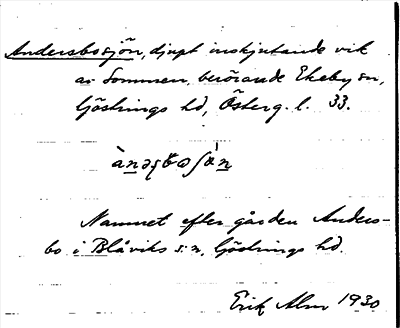 Andersbosjön, djupt inskjutande vik
av Sommen, berörande Ekeby sn,
Göstrings hd, Österg. l. 33.
Namnet efter gården Anders-
bo i Blåviks s:n, Göstrings hd.
Erik Alm 1930